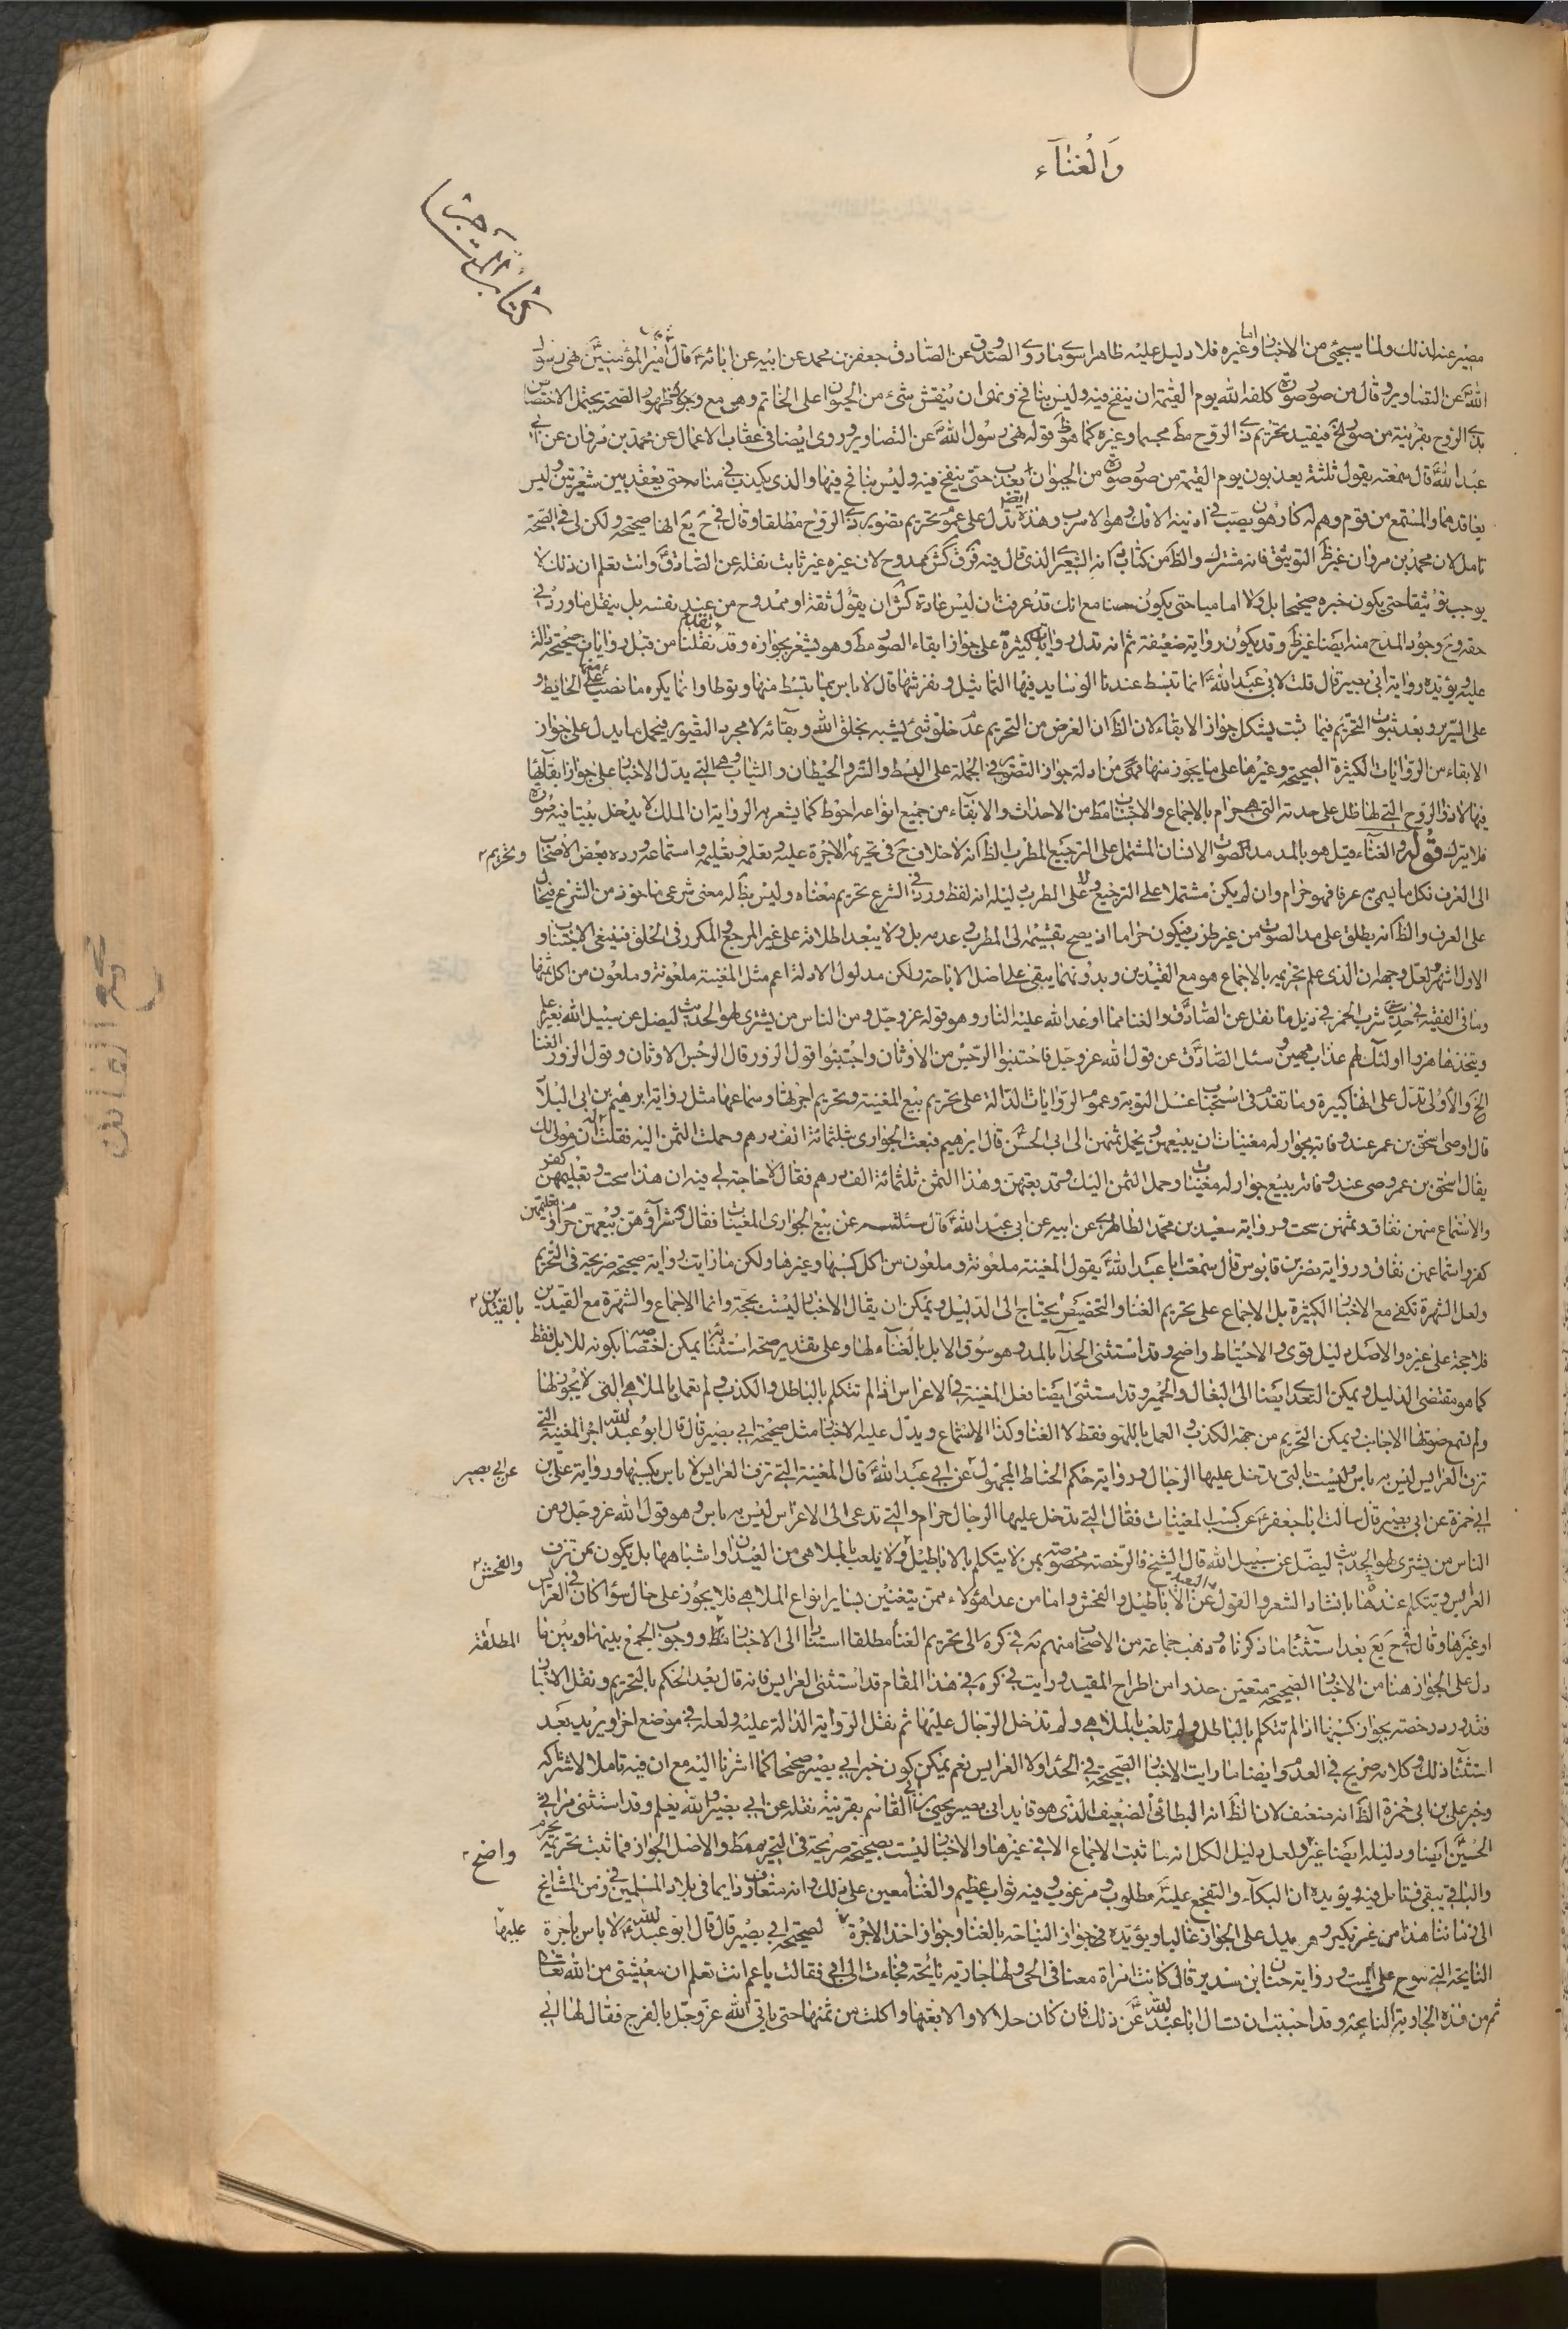 والغناء
كتاب المتاجر
مضر عنه لذلك ولما سيجيئ من الاخبار واما غيره فلا دليل عليه ظاهرا سوى ما روى الصدوق عن الصادق جعفر بن محمد عن ابيه عن ابائه ع قال امير المؤمنين نهى رسول
الله ص عن التصاوير وقال من صور صورة كلفه الله يوم القيمة ان ينفخ فيه وليس بنافخ ونهى ان ينقش شئ من الحيوان على الخاتم وهي مع وجوه ظهور الصحة يحتمل الاختصاص
بذى الروح بقرينة من صور الخ فيفيد تحريم ذى الروح مط مجسما وغيره كما هو ظ قوله نهى رسول الله ص عن التصاوير وروى ايضا فى عقاب الاعمال عن محمد بن مروان عن ابى
عبد الله ع قال سمعته يقول ثلثة يعذبون يوم القيمة من صور صورة من الحيوان يعذب حتى ينفخ فيه وليس بنافخ فيها والذى يكذب فى منامه حتى يعقد بين شعرتين وليس
بعاقدهما والمستمع من قوم وهم له كارهون يصب فى اذنيه الانك وهو الاسرب وهذه ايضا تدل على عموم تحريم تصوير ذى الروح مطلقا وقال فى ح يع انها صحيحة ولكن لى فى الصحة
تامل لان محمد بن مروان غير ظ التوثيق فانه مشترك والظ من كتاب انه الشعيرى الذى قال فيه ق كش ممدوح لان غيره غير ثابت نقله عن الصادق ع وانت تعلم ان ذلك لا
يوجب توثيقا حتى يكون خبره صحيحا بل ولا اماميا حتى يكون حسنا مع انك قد عرفت ان ليس عادة كش ان يقول ثقة او ممدوح من عند نفسه بل ينقل ما ورد فى
حقه وح وجود المدح منه ايضا غير ظ وقد يكون رواية ضعيفة ثم انه تدل روايات كثيرة على جواز ابقاء الصور مط وهو يشعر بجوازه وقد تقدم نقلنا من قبل روايات صحيحة دالة
عليه ويؤيده رواية ابى بصير قال قلت لابى عبد الله ع انما تبسط عندنا الوسايد فيها التماثيل ونفرشها قال لا باس بما تبسط منها وتوطا وانما يكره منها ما نصب على الحايط و
على السرير وبعد ثبوت التحريم فيما ثبت يشكل جواز الابقاء لان الظ ان الغرض من التحريم عدم خلق شئ يشبه بخلق الله وبقائه لا مجرد التصوير فيحمل ما يدل على جواز
الابقاء من الروايات الكثيرة الصحيحة وغيرها على ما يجوز منها فهى من ادلة جواز التصوير فى الجملة على البسط والستر والحيطان والثياب وهى التى يدل الاخبار على جواز ابقائها
فيها لا ذو الروح التى لها ظل على حدته التى هى حرام بالاجماع والاجتناب مط من الاحداث والابقاء من جميع انواعه احوط كما يشعر به الرواية ان الملك لا يدخل بيتا فيه صورة
فلا يترك قوله والغناء قيل هو بالمد مد الصوت الانسان المشتمل على الترجيع المطرب الظ انه لا خلاف ح فى تحريمه الاجرة عليه وتعلمه وتعليمه واستماعه ورده بعض الاصحاب وتحريم
الى العرف فكل ما يسمى به عرفا فهو حرام وان لم يكن مشتملا على الترجيع ولا على المطرب دليله انه لفظ ورد فى الشرع تحريم معناه وليس بظ له معنى شرعى ماخوذ من الشرع فيحال
على العرف والظ انه يطلق على مد الصوت من غير طرب فيكون حراما اذ يصح تقسيمه الى المطرب وعدمه بل ولا يبعد اطلاقه على غير المرجع والمكرر فى الحلق فينبغى الاجتناب و
الاول اشهر ولعل وجهه ان الذى علم تحريمه بالاجماع هو مع القيدين وبدونهما يبقى على اصل الاباحة ولكن مدلول الادلة اعم مثل المغنية ملعونة وملعون من اكل ثمنها
وما فى الفقيه فى حد شرب الخمر فى ذيل ما نقل عن الصادق ع والغنا مما اوعد الله عليه النار وهو قوله عز وجل ومن الناس من يشترى لهو الحديث ليضل عن سبيل الله بغير علم
ويتخذها هزوا اولئك لهم عذاب مهين وسئل الصادق ع عن قول الله عز وجل فاجتنبوا الرجس من الاوثان واجتنبوا قول الزور قال الرجس الاوثان وقول الزور الغنا
الخ والاولى تدل على انها كبيرة وما تقدم فى استحباب غسل التوبة وعموم الروايات الدالة على تحريم بيع المغنية وتحريم اجرتها وسماعها مثل رواية ابرهيم بن ابى البلاد
قال اوصى اسحق بن عمر عند وفاته بجوار له مغنيات ان يبيعهن ويحمل ثمنهن الى ابى الحسن ع قال ابرهيم فبعت الجوارى بثلثمائة الف درهم وحملت الثمن اليه فقلت له ان مولى لك
يقال اسحق بن عمر وصى عند وفاته ببيع جوار له مغنيات وحمل الثمن اليك وقد بعتهن وهذا الثمن ثلثمائة الف درهم فقال لا حاجة لى فيه ان هذا سحت وتعليمهن كفر
والاستماع منهن نفاق وثمنهن سحت ورواية سعيد بن محمد الطاهرى عن ابيه عن ابى عبد الله ع قال سئلته عن بيع الجوارى المغنيات فقال شراؤهن وبيعهن حرام وتعليمهن
كفر واستماعهن نفاق ورواية نضر بن قابوس قال سمعت ابا عبد الله ع يقول المغنية ملعونة وملعون من اكل كسبها وغيرها ولكن ما رايت رواية صحيحة صريحة فى التحريم
ولعل الشهرة تكفى مع الاخبار الكثيرة بل الاجماع على تحريم الغنا والتخصيص يحتاج الى الدليل ويمكن ان يقال الاخبار ليست بحجة وانما الاجماع والشهرة مع القيدين بالقيدين
فلا حجة على غيره والاصل دليل قوى والاحتياط واضح وقد استثنى الحدا بالمد وهو سوق الابل بالغناء لها وعلى تقدير صحة استثنائه يمكن اختصاصه بكونه للابل فقط
كما هو مقتضى الدليل ويمكن التعدى ايضا الى البغال والحمير وقد استثنى ايضا فعل المغنية فى الاعراس اذا لم تتكلم بالباطل والكذب ولم تعمل بالملاهى التى لا يجوز لها
ولم تسمع صوتها الاجانب ويمكن التحريم من جهة الكذب والعمل باللهو فقط لا الغنا وكذا الاستماع ويدل عليه الاخبار مثل صحيحة ابى بصير قال قال ابو عبد الله ع اجر المغنية التى
تزف العرايس ليس به باس وليست بالتى يدخل عليها الرجال ورواية حكم الحناط المجهول عن ابى عبد الله ع قال المغنية التى تزف العرايس لا باس بكسبها ورواية على بن عن ابى بصير
ابى حمزة عن ابى بصير قال سالت ابا جعفر ع عن كسب المغنيات فقال التى يدخل عليها الرجال حرام والتى تدعى الى الاعراس ليس به باس وهو قول الله عز وجل ومن
الناس من يشترى لهو الحديث ليضل عن سبيل الله قال الشيخ فالرخصة مخصوصة بمن لا يتكلم بالاباطيل ولا يلعب بالملاهى من العيدان واشباهها بل يكون ممن تزف والفحش
العرايس وتتكلم عندها بانشاد الشعر والقول البعيد عن الاباطيل والفحش واما من عدا هؤلاء ممن يتغنين بساير انواع الملاهى فلا يجوز على حال سواء كان فى العرايس
او غيرها وقال فى ح يع بعد استثنا ما ذكرناه وذهب جماعة من الاصحاب منهم مه فى كره الى تحريم الغنا مطلقا استنادا الى الاخبار مط ووجوب الجمع بينها وبين ما المطلقة
دل على الجواز هنا من الاخبار الصحيحة متعين حذرا من اطراح المقيد ورايت فى كره فى هذا المقام قد استثنى العرايس فانه قال بعد الحكم بالتحريم ونقل الاخبار
فقد ورد رخصة بجواز كسبها اذا لم تتكلم بالباطل ولم تلعب بالملاهى ولم تدخل الرجال عليها ثم نقل الرواية الدالة عليه ولعله فى موضع اخر ويريد بعد
استثنا ذلك وكلامه صريح فى العدم وايضا ما رايت الاخبار الصحيحة فى الحدا ولا العرايس نعم يمكن كون خبر ابى بصير صحيحا كما اشرنا اليه مع ان فيه تاملا لاشتراكه
وخبر على بن ابى حمزة الظ انه ضعيف لان الظ انه البطائنى الضعيف الذى هو قايد ابى بصير يحيى بن ابى القاسم بقرينة نقله عن ابى بصير والله يعلم وقد استثنى مراثى
الحسين ع ايضا ودليله ايضا غير ولعل دليل الكل انه ما ثبت الاجماع الا فى غيرها والاخبار ليست بصحيحة صريحة فى التحريم مط والاصل الجواز فما ثبت تحريمه يحرم واضح
والباقى يبقى فتامل فيه ويؤيده ان البكاء والتفجع عليه ع مطلوب ومرغوب وفيه ثواب عظيم والغنا معين على ذلك وانه متعارف دايما فى بلاد المسلمين فى زمن المشايخ
الى زماننا هذا من غير نكير وهو يدل على الجواز غالبا ويؤيده فى جواز النياحة بالغنا وجواز اخذ الاجرة لصحيحة ابى بصير قال قال ابو عبد الله ع لا باس باجرة عليها
النايحة التى تنوح على الميت ورواية حنان بن سدير قال كانت امراة معنا فى الحى ولها جارية نايحة فجاءت الى ابى فقالت يا عم انت تعلم ان معيشتى من الله تعالى
ثم من هذه الجارية النايحة وقد احببت ان تسال ابا عبد الله ع عن ذلك فان كان حلالا والا بعتها واكلت من ثمنها حتى ياتى الله عز وجل بالفرج فقال لها ابى